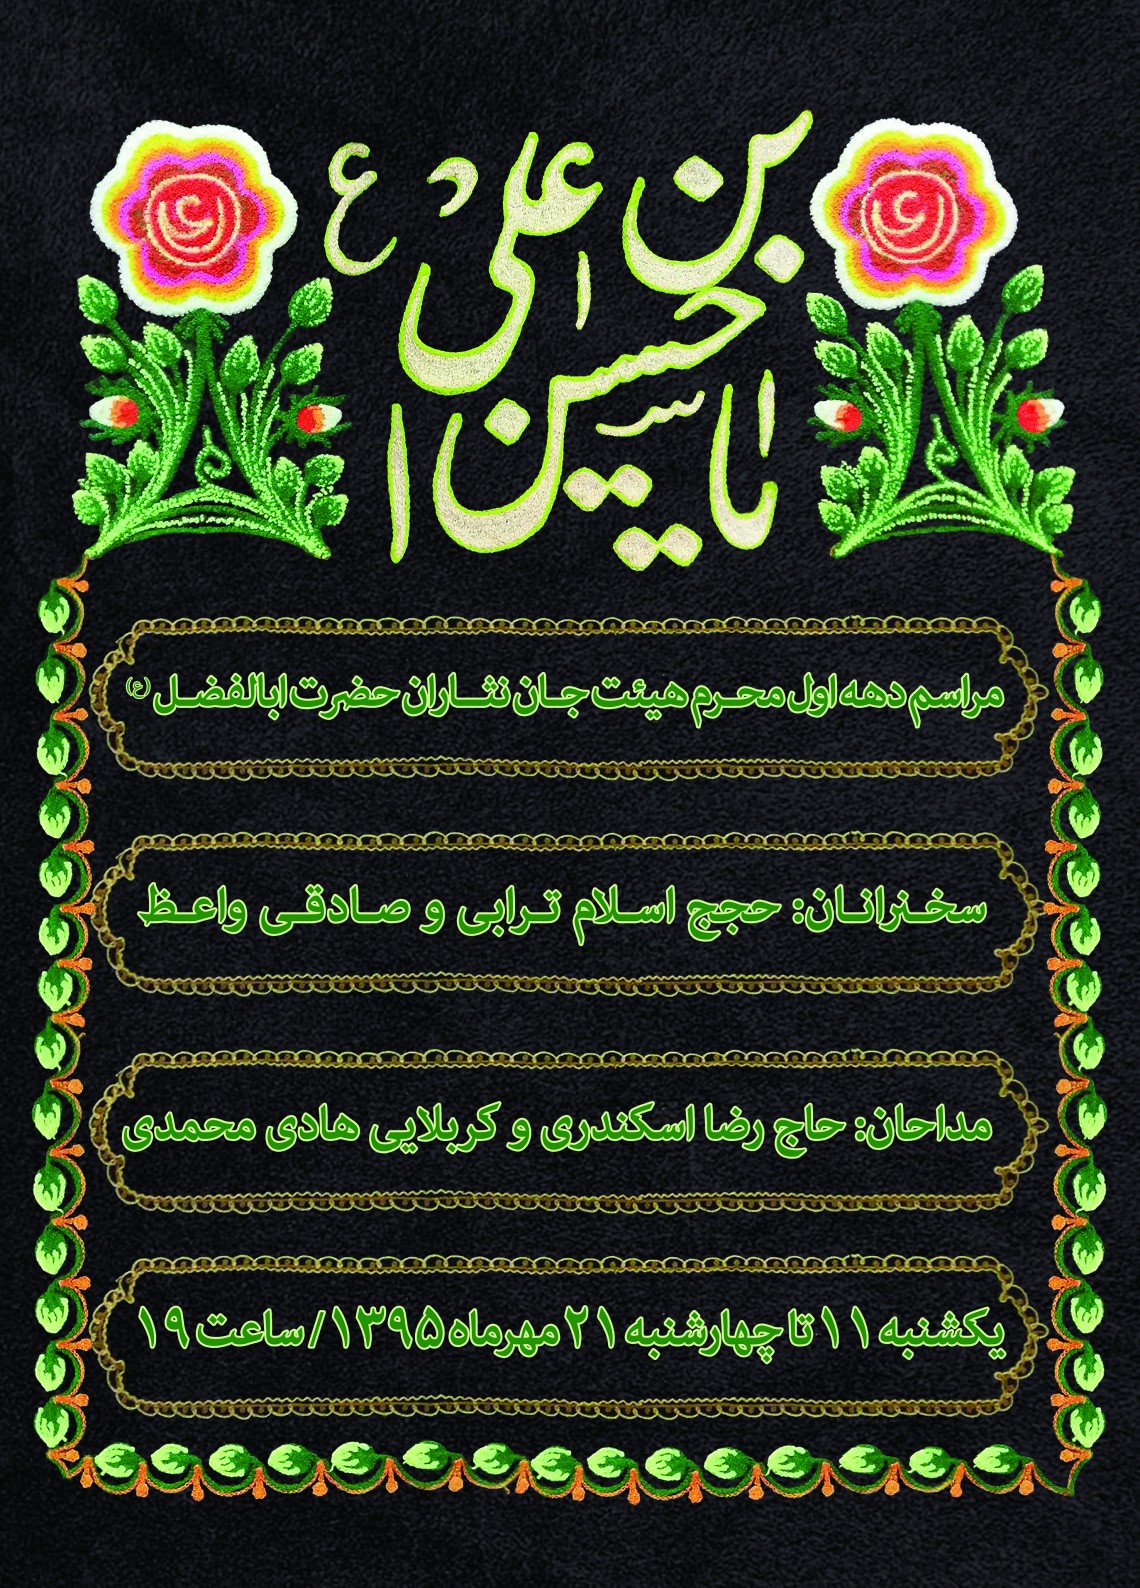 یا حسین ابن علی ع
مراسم دهه اول محرم هیئت جان نثاران حضرت ابالفضل (ع)
سخنرانان: حجج اسلام ترابی و صادقی واعظ
مداحان: حاج رضا اسکندری و کربلایی هادی محمدی
یکشنبه ۱۱ تا چهارشنبه ۲۱ مهرماه ۱۳۹۵/ ساعت ۱۹